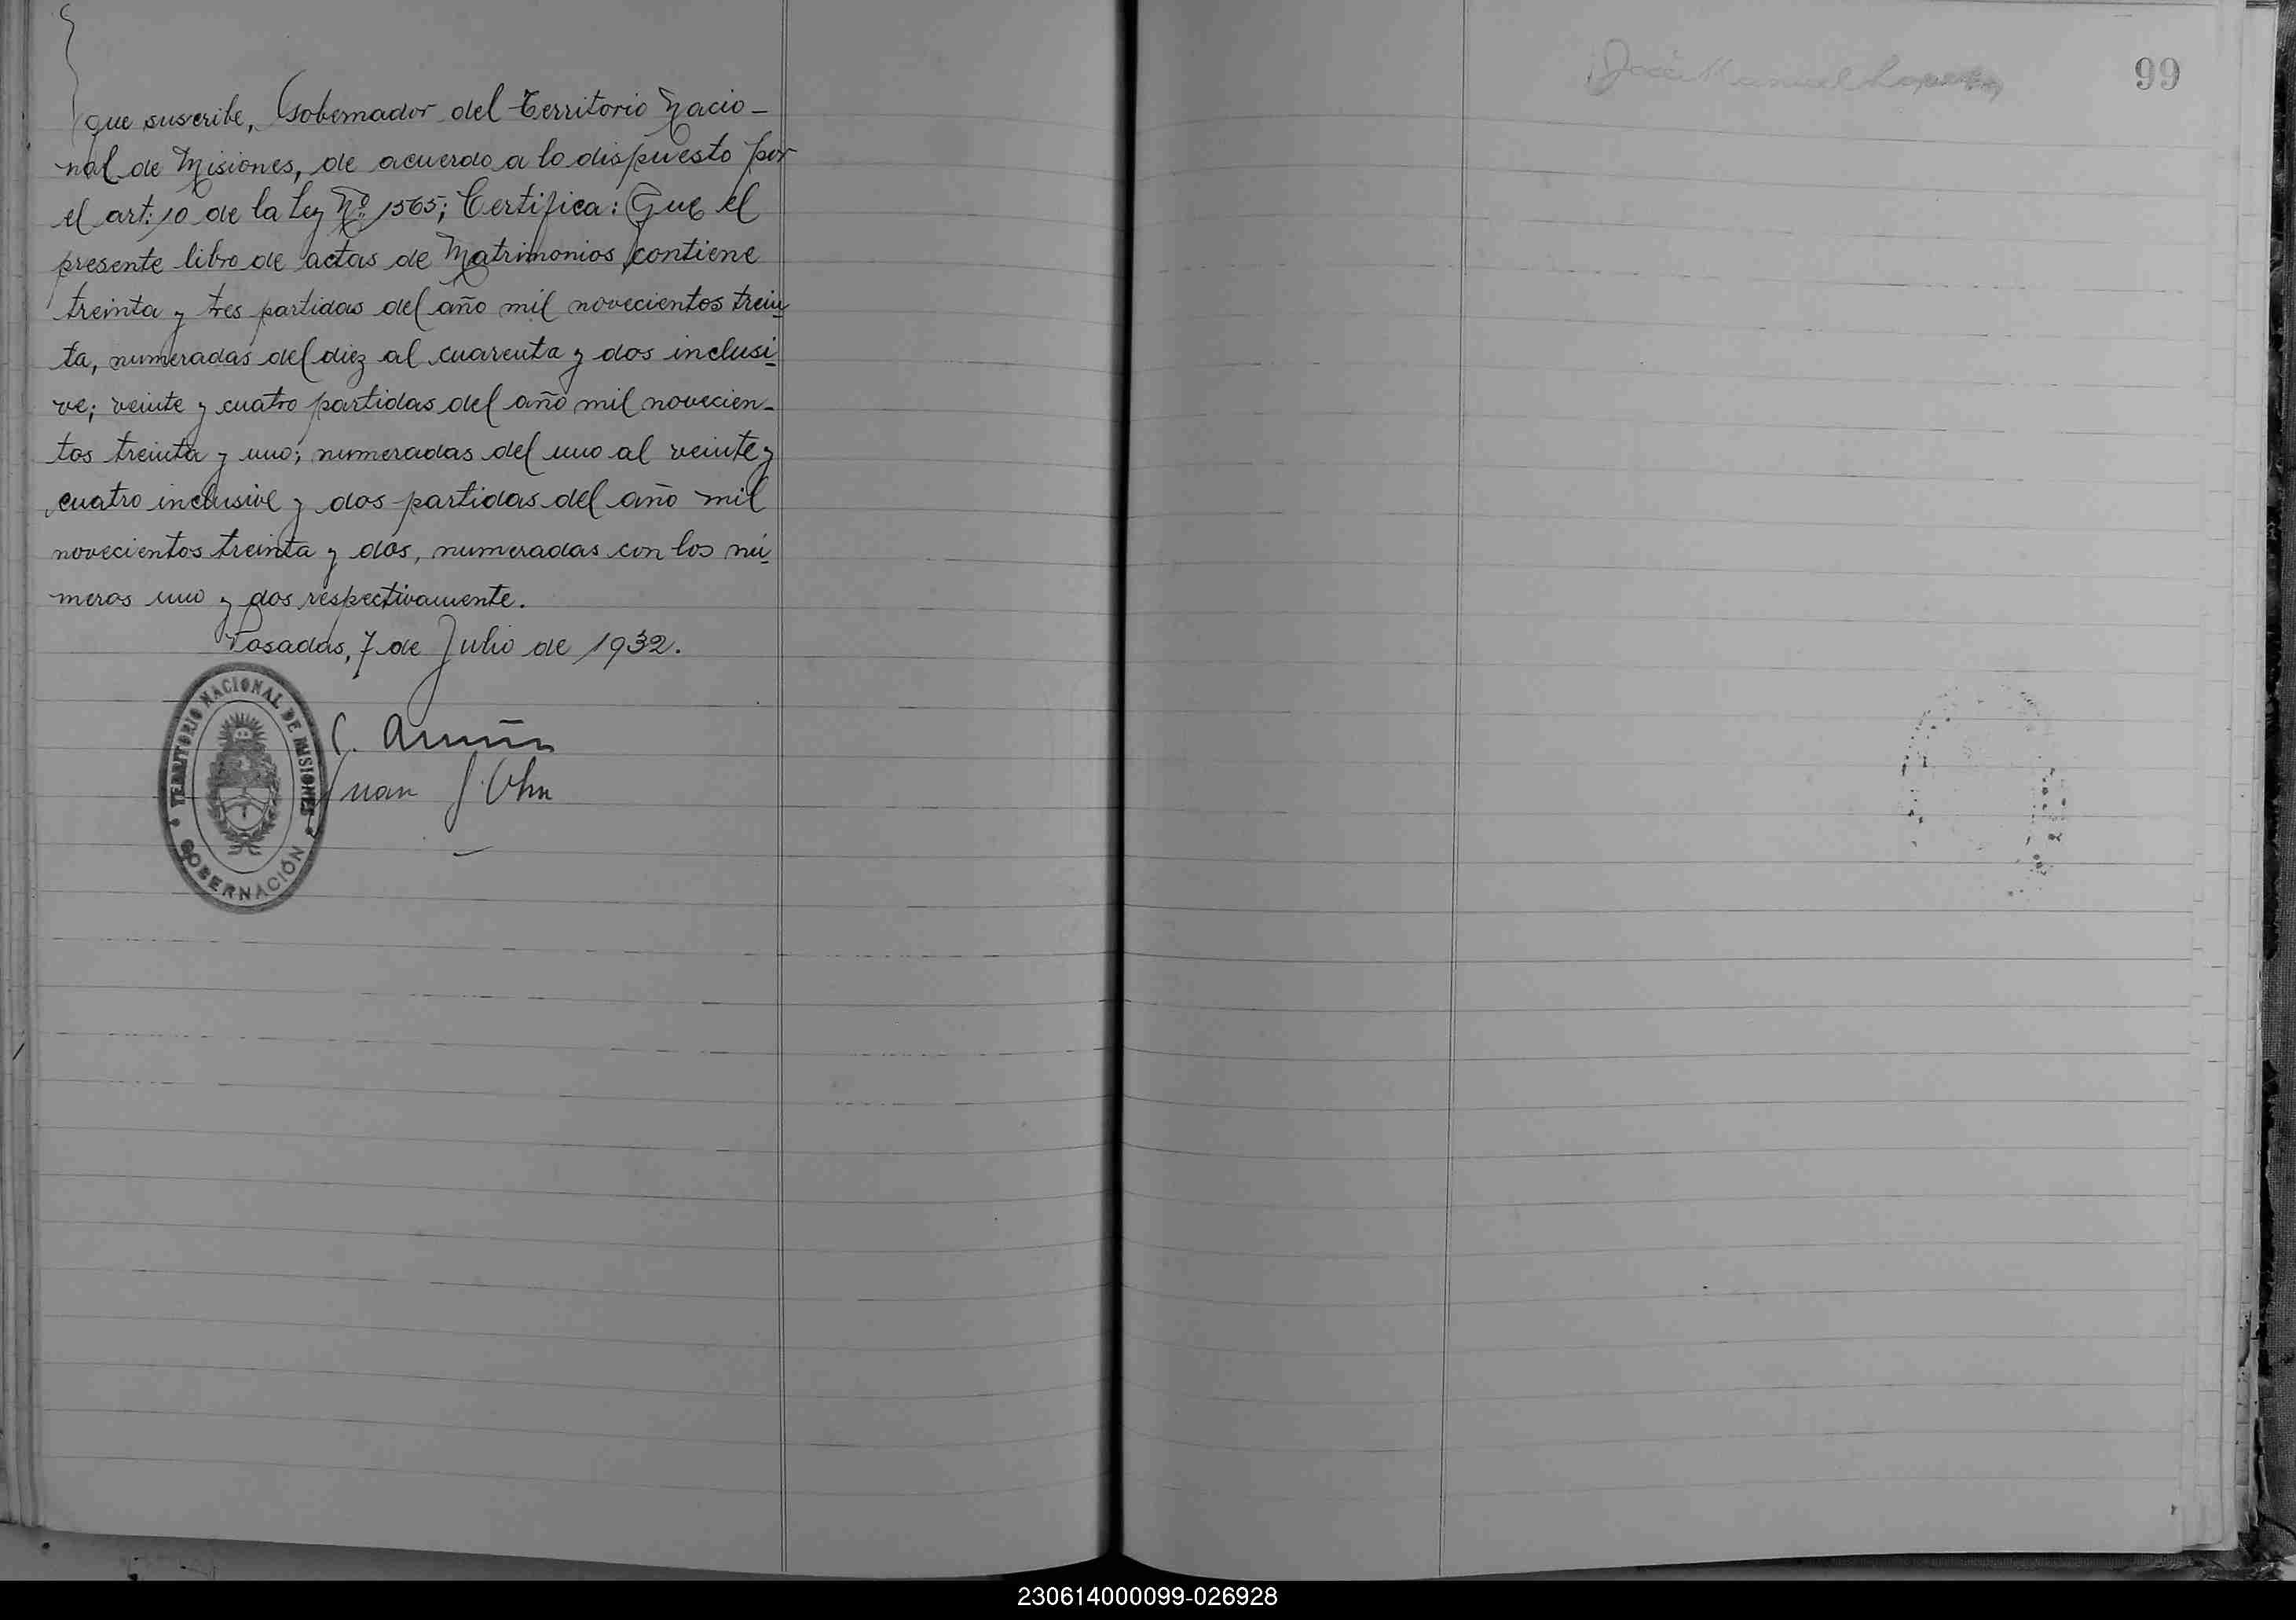 que suscribe, Gobernador del Territorio Nacio-
nal de Misiones, de acuerdo a lo dispuesto por
el art: 10 de la Ley Nº 1565; Certifica: Que el
presente libro de actas de Matrimonios contiene
treinta y tres partidas del año mil novecientos trein
ta, numeradas del diez al cuarenta y dos inclusi
ve; veinte y cuatro partidas del año mil novecien-
tos treinta y uno; numeradas del uno al veinte y
cuatro inclusive y dos partidas del año mil
novecientos treinta y dos, numeradas con los nú
meros uno y dos respectivamente.
Posadas, 7 de Julio de 1932.
TERRITORIO NACIONAL DE MISIONES
GOBERNACIÓN
C.
Juan
José Manuel
99
230614000099-026928